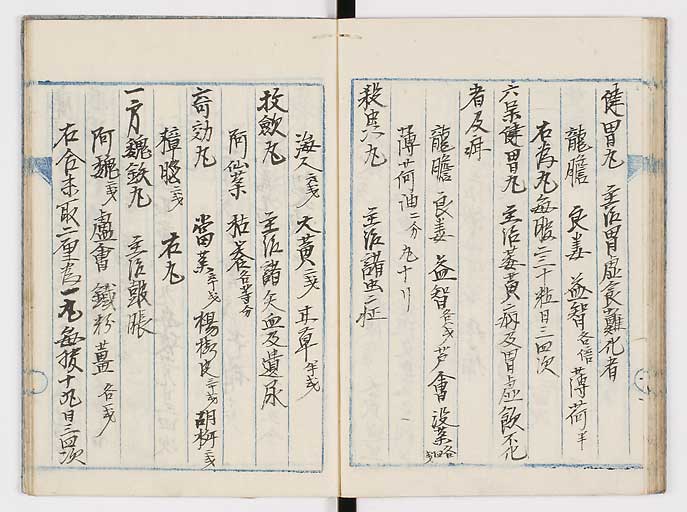 健胃丸　主治胃虚食難化者
龍膽　良姜　益智各倍　薄荷半
右為丸毎服二三十粒日三四次
六味健胃丸　主治萎黄病及胃虚飲不化
者及痳
龍膽　良姜　益智各戔　芦薈　没薬各
薄荷油二分　丸十
殺虫丸　主治諸虫症
海人三戔　大黄二戔　甘草半戔
収斂丸　主治諸失血及遺尿
阿仙薬　枯礬各等分
奇効丸　當薬　楊梅皮　胡椒二戔
樟脳三戔　右丸
一方魏鉄丸　主治皷脹
阿魏二戔　盧會　鐵粉　薑　各戔
右合末取二厘為一丸毎服十丸日三四次